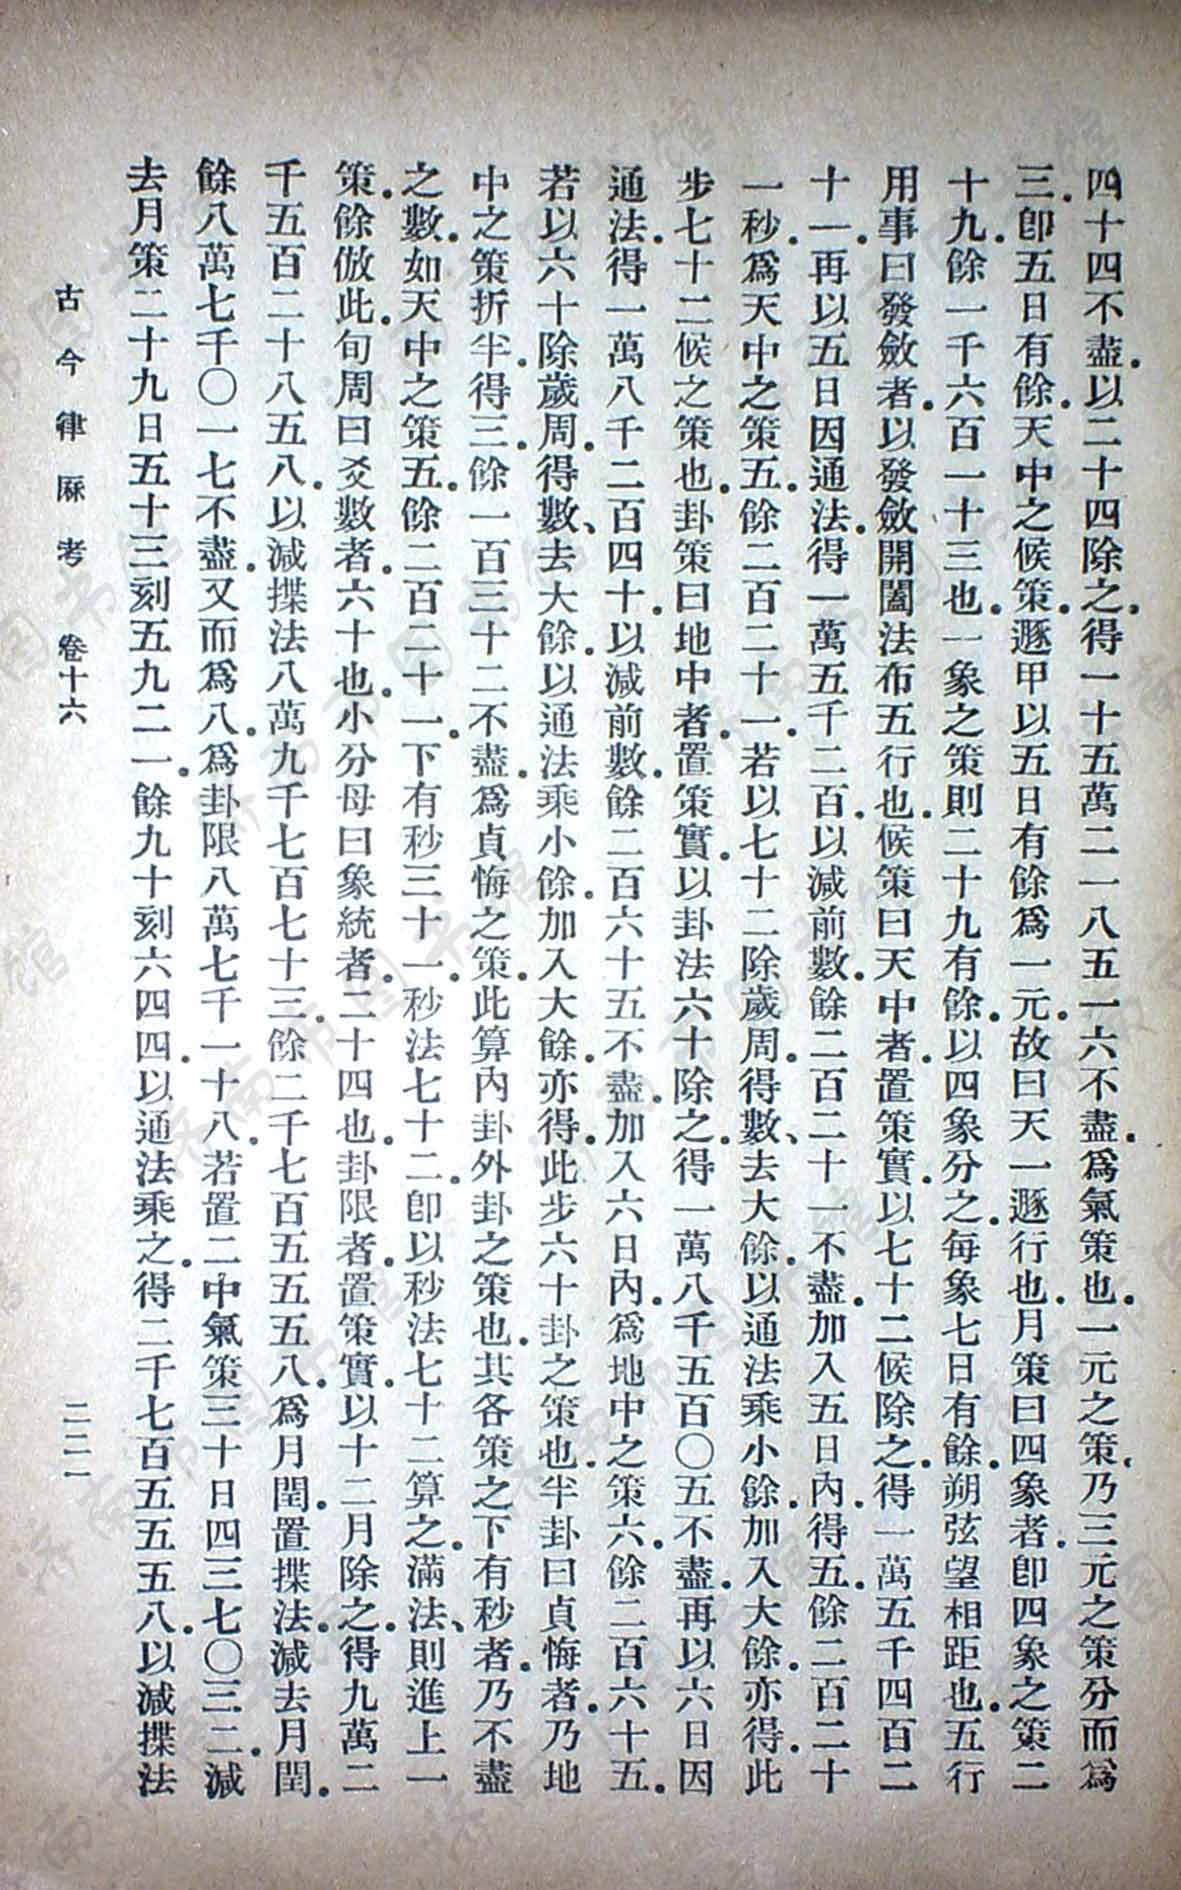 四十四不盡。以二十四除之。得一十五萬二一八五一六不盡。爲氣策也。一元之策。乃三元之策分而爲
三。卽五日有餘。天中之候策。遯甲以五日有餘爲一元。故曰天一遯行也。月策曰四象者。卽四象之策二
十九。餘一千六百一十三也。一象之策。則二十九有餘。以四象分之。每象七日有餘。朔弦望相距也。五行
用事曰發斂者。以發斂開闔法布五行也。候策曰天中者。置策實。以七十二候除之。得一萬五千四百二
十一。再以五日因通法。得一萬五千二百。以減前數。餘二百二十一不盡。加入五日內。得五。餘二百二十
一秒。爲天中之策五。餘二百二十一。若以七十二除歲周。得數、去大餘。以通法乘小餘。加入大餘。亦得。此
步七十二候之策也。卦策曰地中者。置策實。以卦法六十除之。得一萬八千五百〇五不盡。再以六日因
通法。得一萬八千二百四十。以減前數。餘二百六十五不盡。加入六日內。爲地中之策六。餘二百六十五。
若以六十除歲周。得數、去大餘。以通法乘小餘。加入大餘。亦得。此步六十卦之策也。半卦曰貞悔者。乃地
中之策折半。得三。餘一百三十二不盡。爲貞悔之策。此算內卦外卦之策也。共各策之下有秒者。乃不盡
之數。如天中之策五。餘二百二十一。下有秒三十一。秒法七十二。卽以秒法七十二算之。滿法、則進上一
策。餘倣此。旬周曰爻數者。六十也。小分母曰象統者。二十四也。卦限者。置策實。以十二月除之。得九萬二
千五百二十八五八。以減揲法八萬九千七百七十三。餘二千七百五五五八。爲月閏。置揲法。減去月閏。
餘八萬七千〇一七不盡。又而爲八。爲卦限八萬七千一十八。若置二中氣策三十日四三七〇三二。減
去月策二十九日五十三刻五九二一。餘九十刻六四四。以通法乘之。得二千七百五五五八。以減揲法
古今律厤考　卷十六
二二一